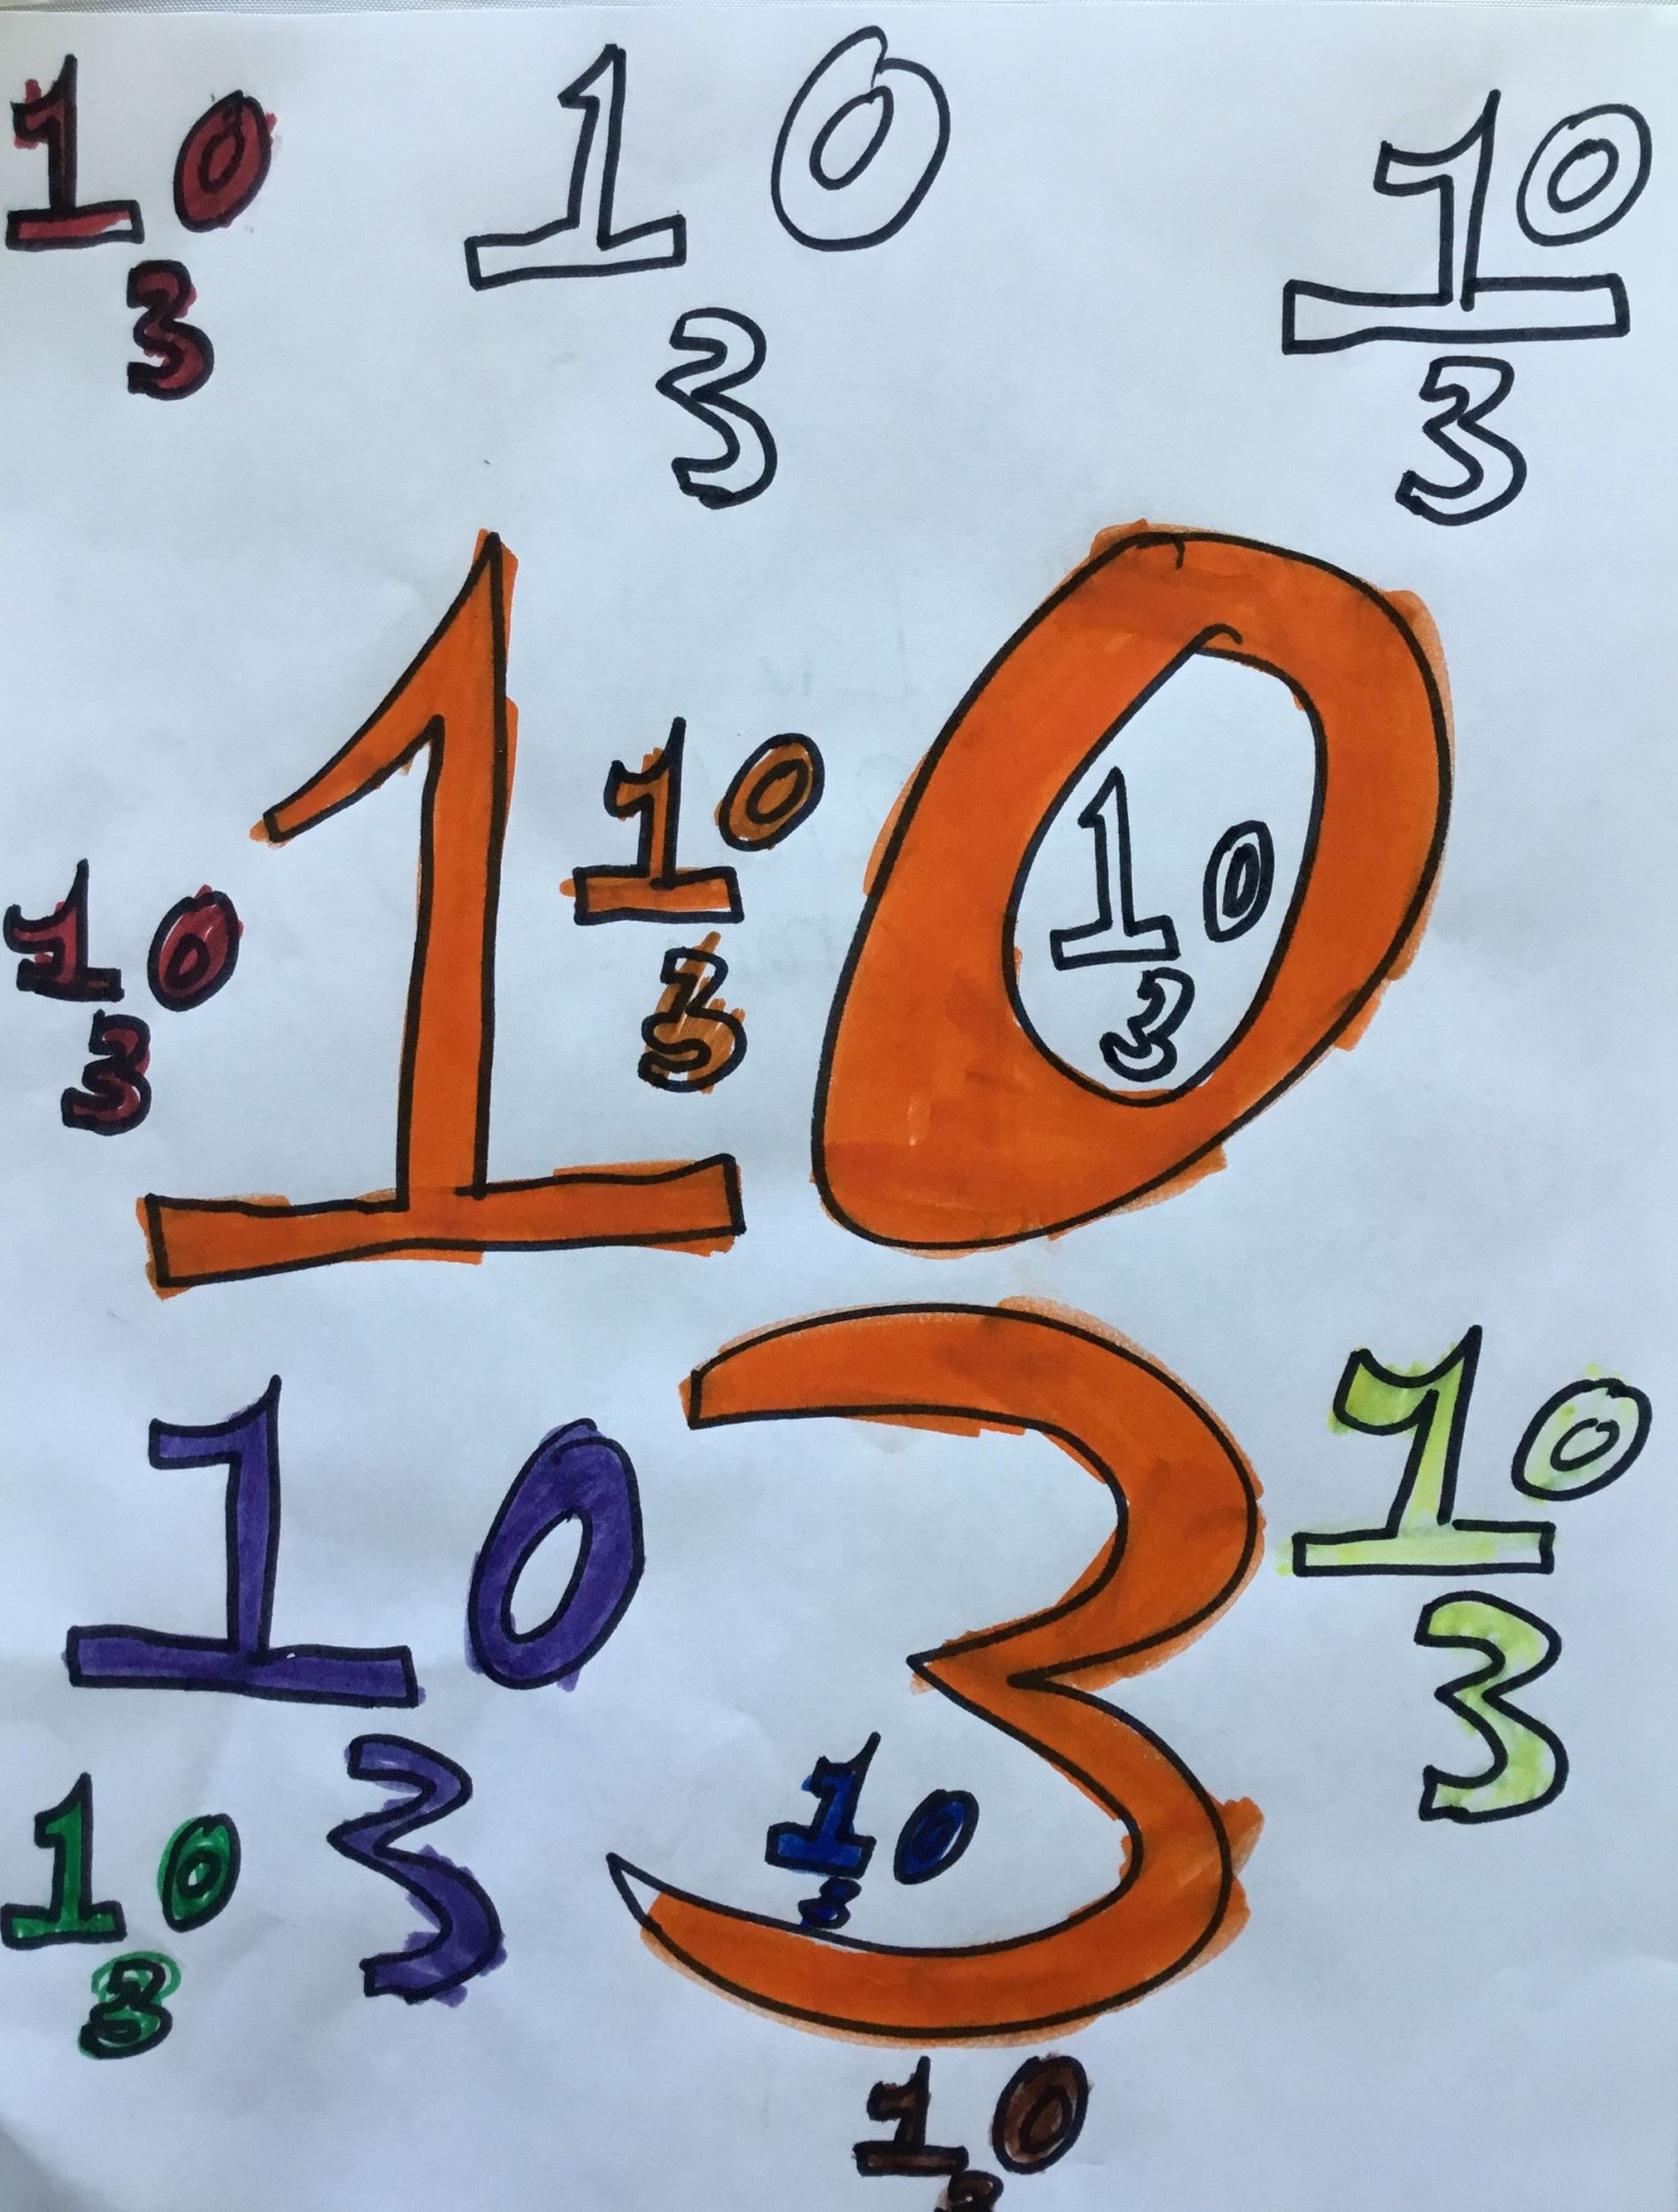 10
3
10
3
10
3
10
3
10
3
10
3
10
3
10
3
10
3
10
3
10
3
10
3